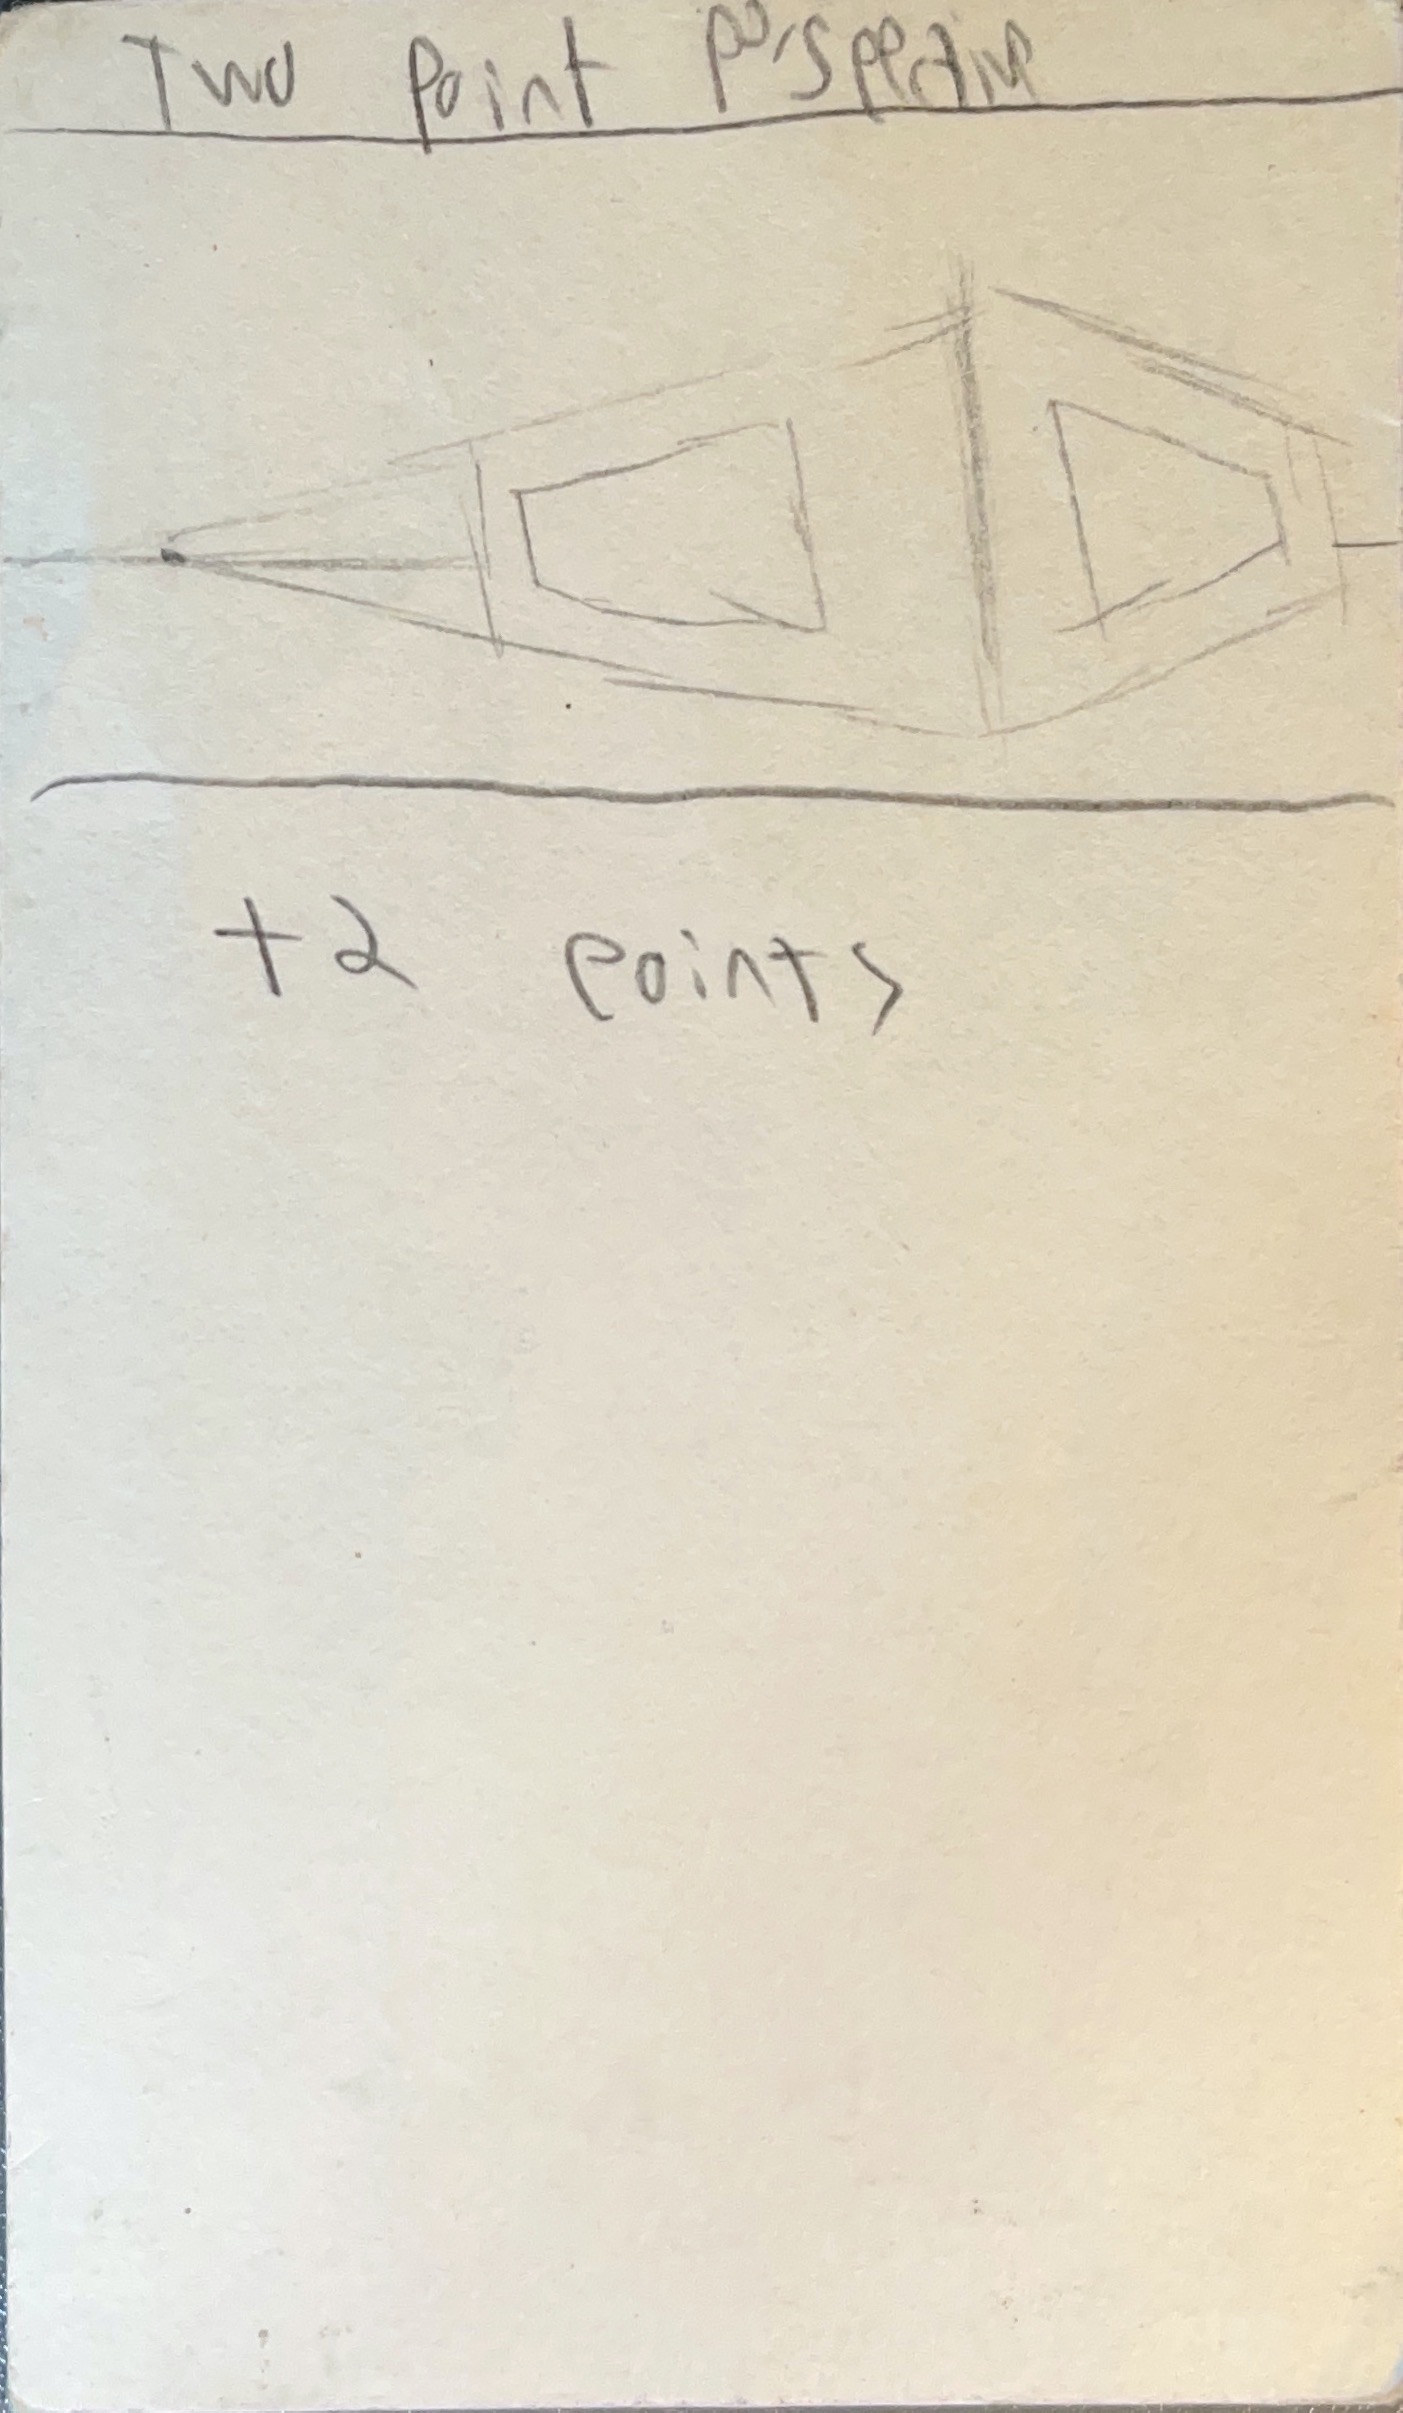 Two Point perspective
+2 points